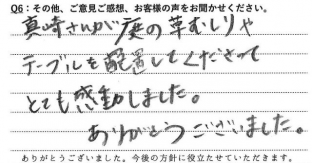 Q6：その他、ご意見ご感想、お客様の声をお聞かせください。
真崎さんが庭の草むしりや
テーブルを配置してくださって
とても感動しました。
ありがとうございました。
ありがとうございました。今後の方針に役立たせていただきます。